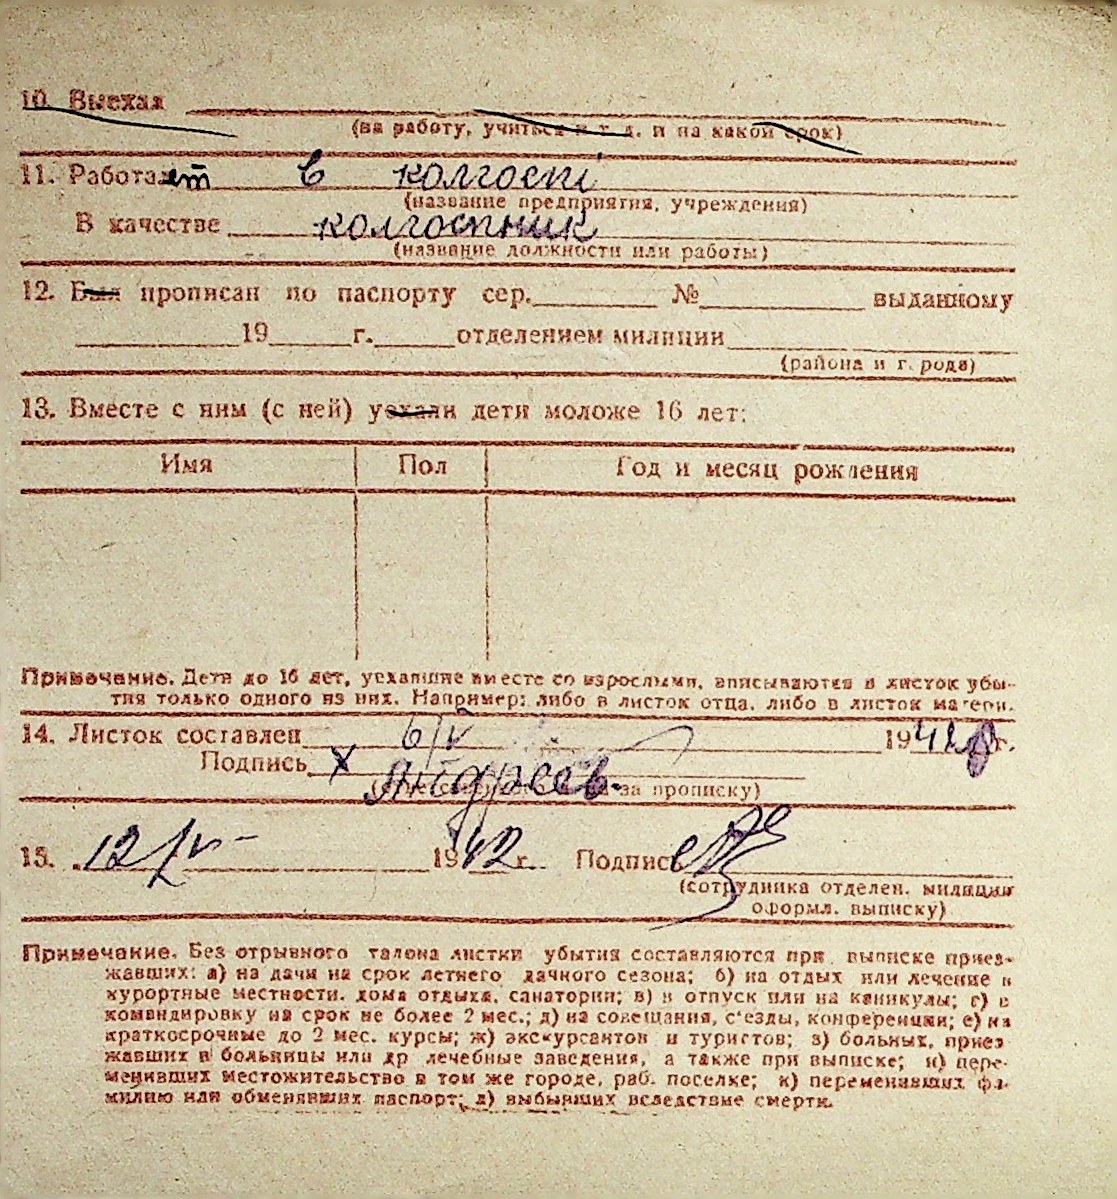 10. Выехал
(на работу, учиться и т. д. и на какой срок)
11. Работает в колгоспі
(название предприятия, учреждения)
В качестве колгоспник
(название должности или работы)
12. Был прописан по паспорту сер. № выданному
19 г. отделением милиции
(района и города)
13. Вместе с ним (с ней) уехали дети моложе 16 лет:
Имя Пол Год и месяц рождения
Примечание. Дети до 16 лет, уехавшие вместе со взрослыми, вписываются в листок убы-
тия только одного из них. Например: либо в листок отца, либо в листок матери.
14. Листок составлен 6/IV 1942 г.
Подпись Андреев
за прописку)
15. 12/IV 1942 г. Подпись
(сотрудника отделен. милиции
оформл. выписку)
Примечание. Без отрывного талона листки убытия составляются при выписке приез-
жавших: а) на дачи на срок летнего дачного сезона; б) на отдых или лечение в
курортные местности, дома отдыха, санатории; в) в отпуск или на каникулы; г) в
командировку на срок не более 2 мес.; д) на совещания, с'езды, конференции; е) на
краткосрочные до 2 мес. курсы; ж) экскурсантов и туристов; з) больных, приез-
жавших в больницы или др лечебные заведения, а также при выписке; и) пере-
менивших местожительство в том же городе, раб. поселке; к) переменивших фа-
милию или обменявших паспорт; л) выбывших вследствие смерти.